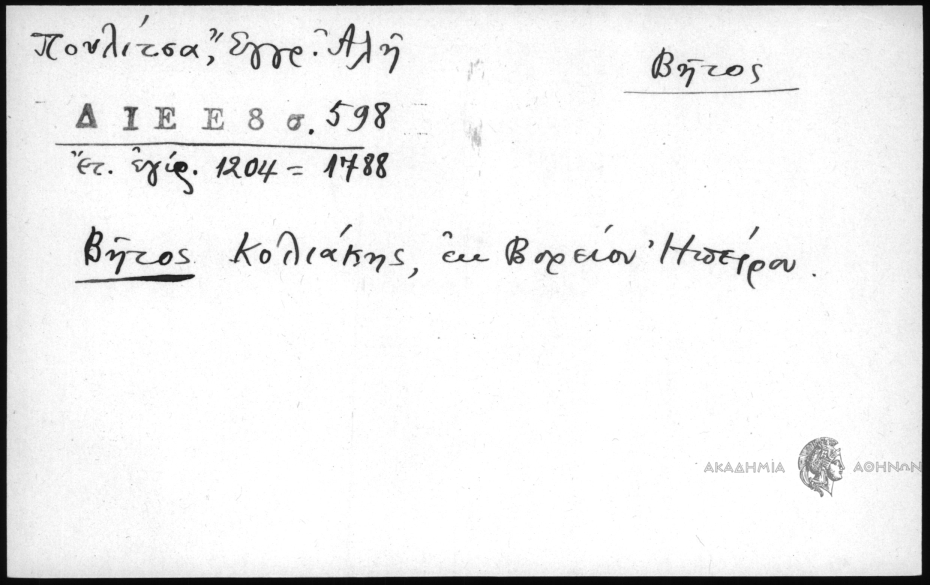 Πουλίτσα, Ἔγγρ. Ἀλῆ
Βῆτος
ΔΙΕΕ 8 σ. 598
ἔτ. ἐγίρ. 1204 = 1788
Βῆτος Κολιάκης, ἐκ Βορείου Ἠπείρου.
ΑΚΑΔΗΜΙΑ ΑΘΗΝΩΝ